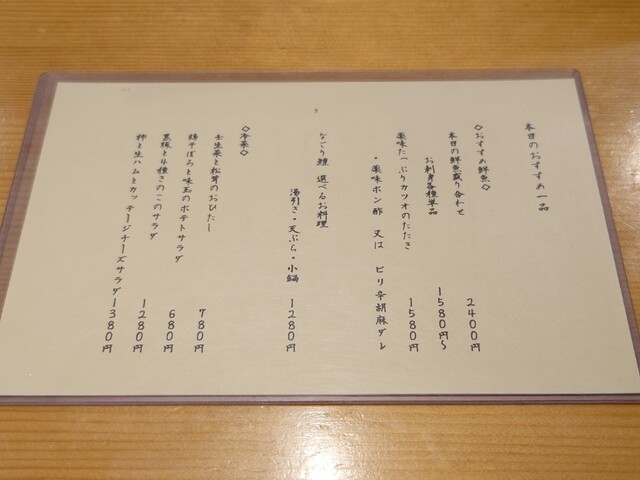 本日のおすすめ一品
◇おすすめ鮮魚◇
本日の鮮魚盛り合わせ 2400円
お刺身各種単品 1580円〜
薬味たっぷりカツオのたたき 1580円
・薬味ポン酢 又は ピリ辛胡麻ダレ
なごり鱧 選べるお料理
湯引き・天ぷら・小鍋 1280円
◇冷菜◇
壬生菜と松茸のおひたし 780円
鶏そぼろと味玉のポテトサラダ 680円
黒豚と4種きのこのサラダ 1280円
柿と生ハムとカッテージチーズサラダ 1380円